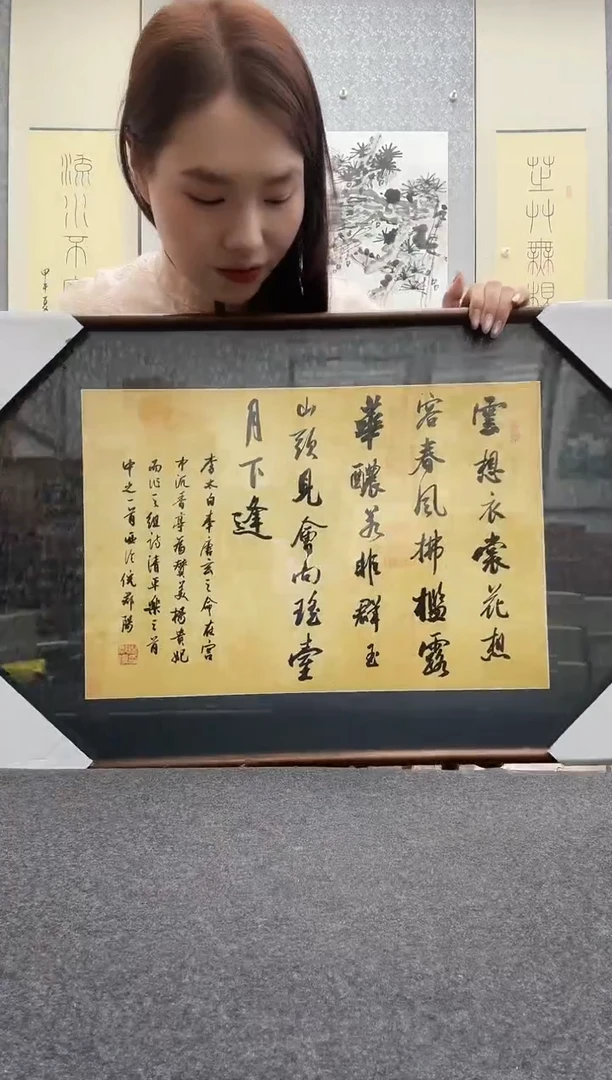 芝艸無
雲想衣裳花想
容春風拂檻露
華醲若非群玉
山頭見會向瑤臺
月下逢
李太白奉唐玄之命在宮
中沉香亭贊美楊貴妃
而作之組詩清平樂三首
中之一首西泠倪
流水不
甲午夏